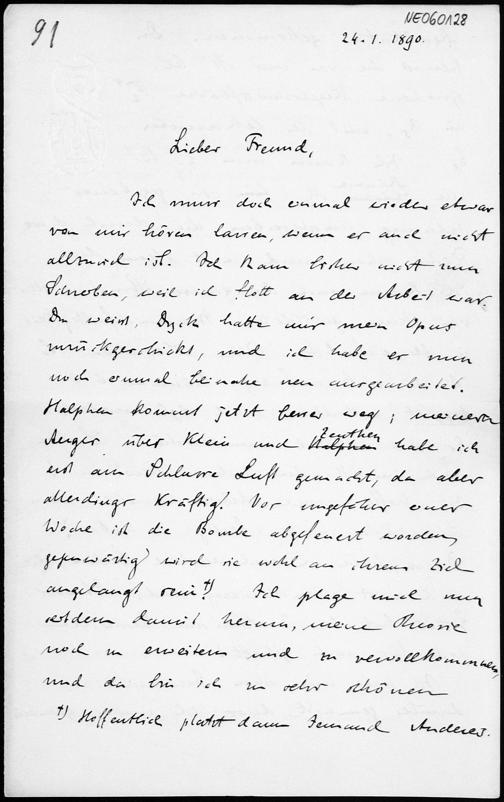 91
NE060128
24. 1. 1890.
Lieber Freund,
Ich muss doch einmal wieder etwas
von mir hören lassen, wenn es auch nicht
allzuviel ist. Ich kam bisher nicht zum
Schreiben, weil ich flott an der Arbeit war.
Du weisst, Dyck hatte mir mein Opus
zurückgeschickt, und ich habe es nun
noch einmal beinahe neu ausgearbeitet.
Halphen kommt jetzt besser weg; meinem
Aerger über Klein und Zeuthen habe ich
erst am Schlusse Luft gemacht, da aber
allerdings kräftig. Vor ungefähr einer
Woche ist die Bombe abgefeuert worden,
gegenwärtig wird sie wohl an ihrem Ziel
angelangt sein †) Ich plage mich nun
seitdem damit herum, meine Theorie
noch zu erweitern und zu vervollkommnen,
und da bin ich zu sehr schönen
†) Hoffentlich platzt dann Jemand Anderes.